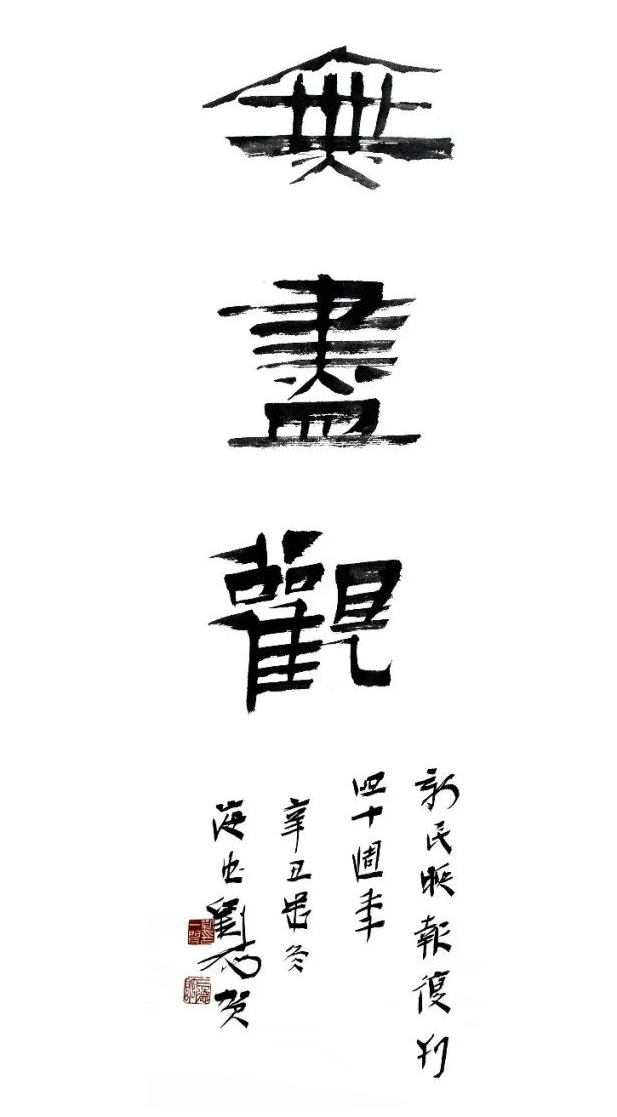 無盡觀
新民晚報復刊
四十週年
辛丑冬
海劉一聞贺